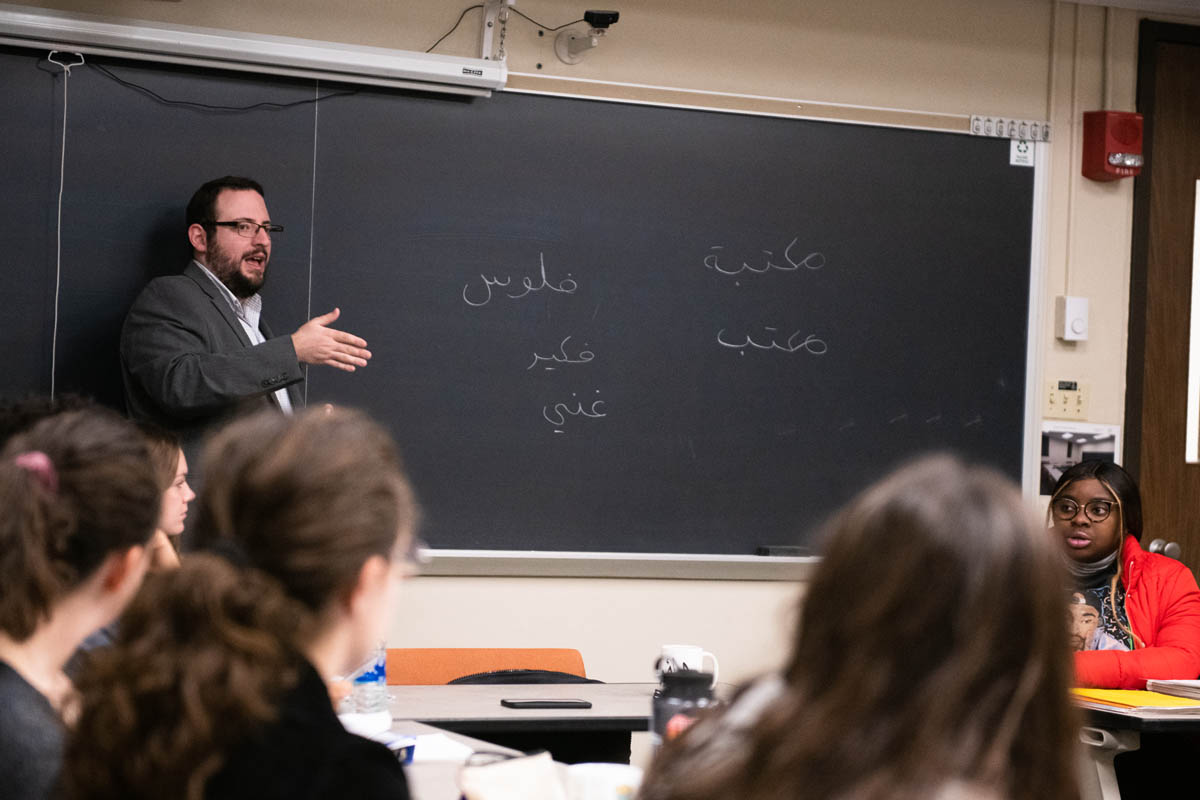 مكتبة
مكتب
فلوس
فكير
غني
FIRE